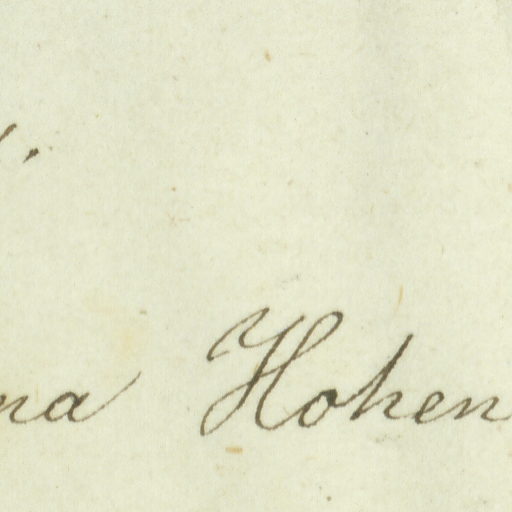 na Hohen